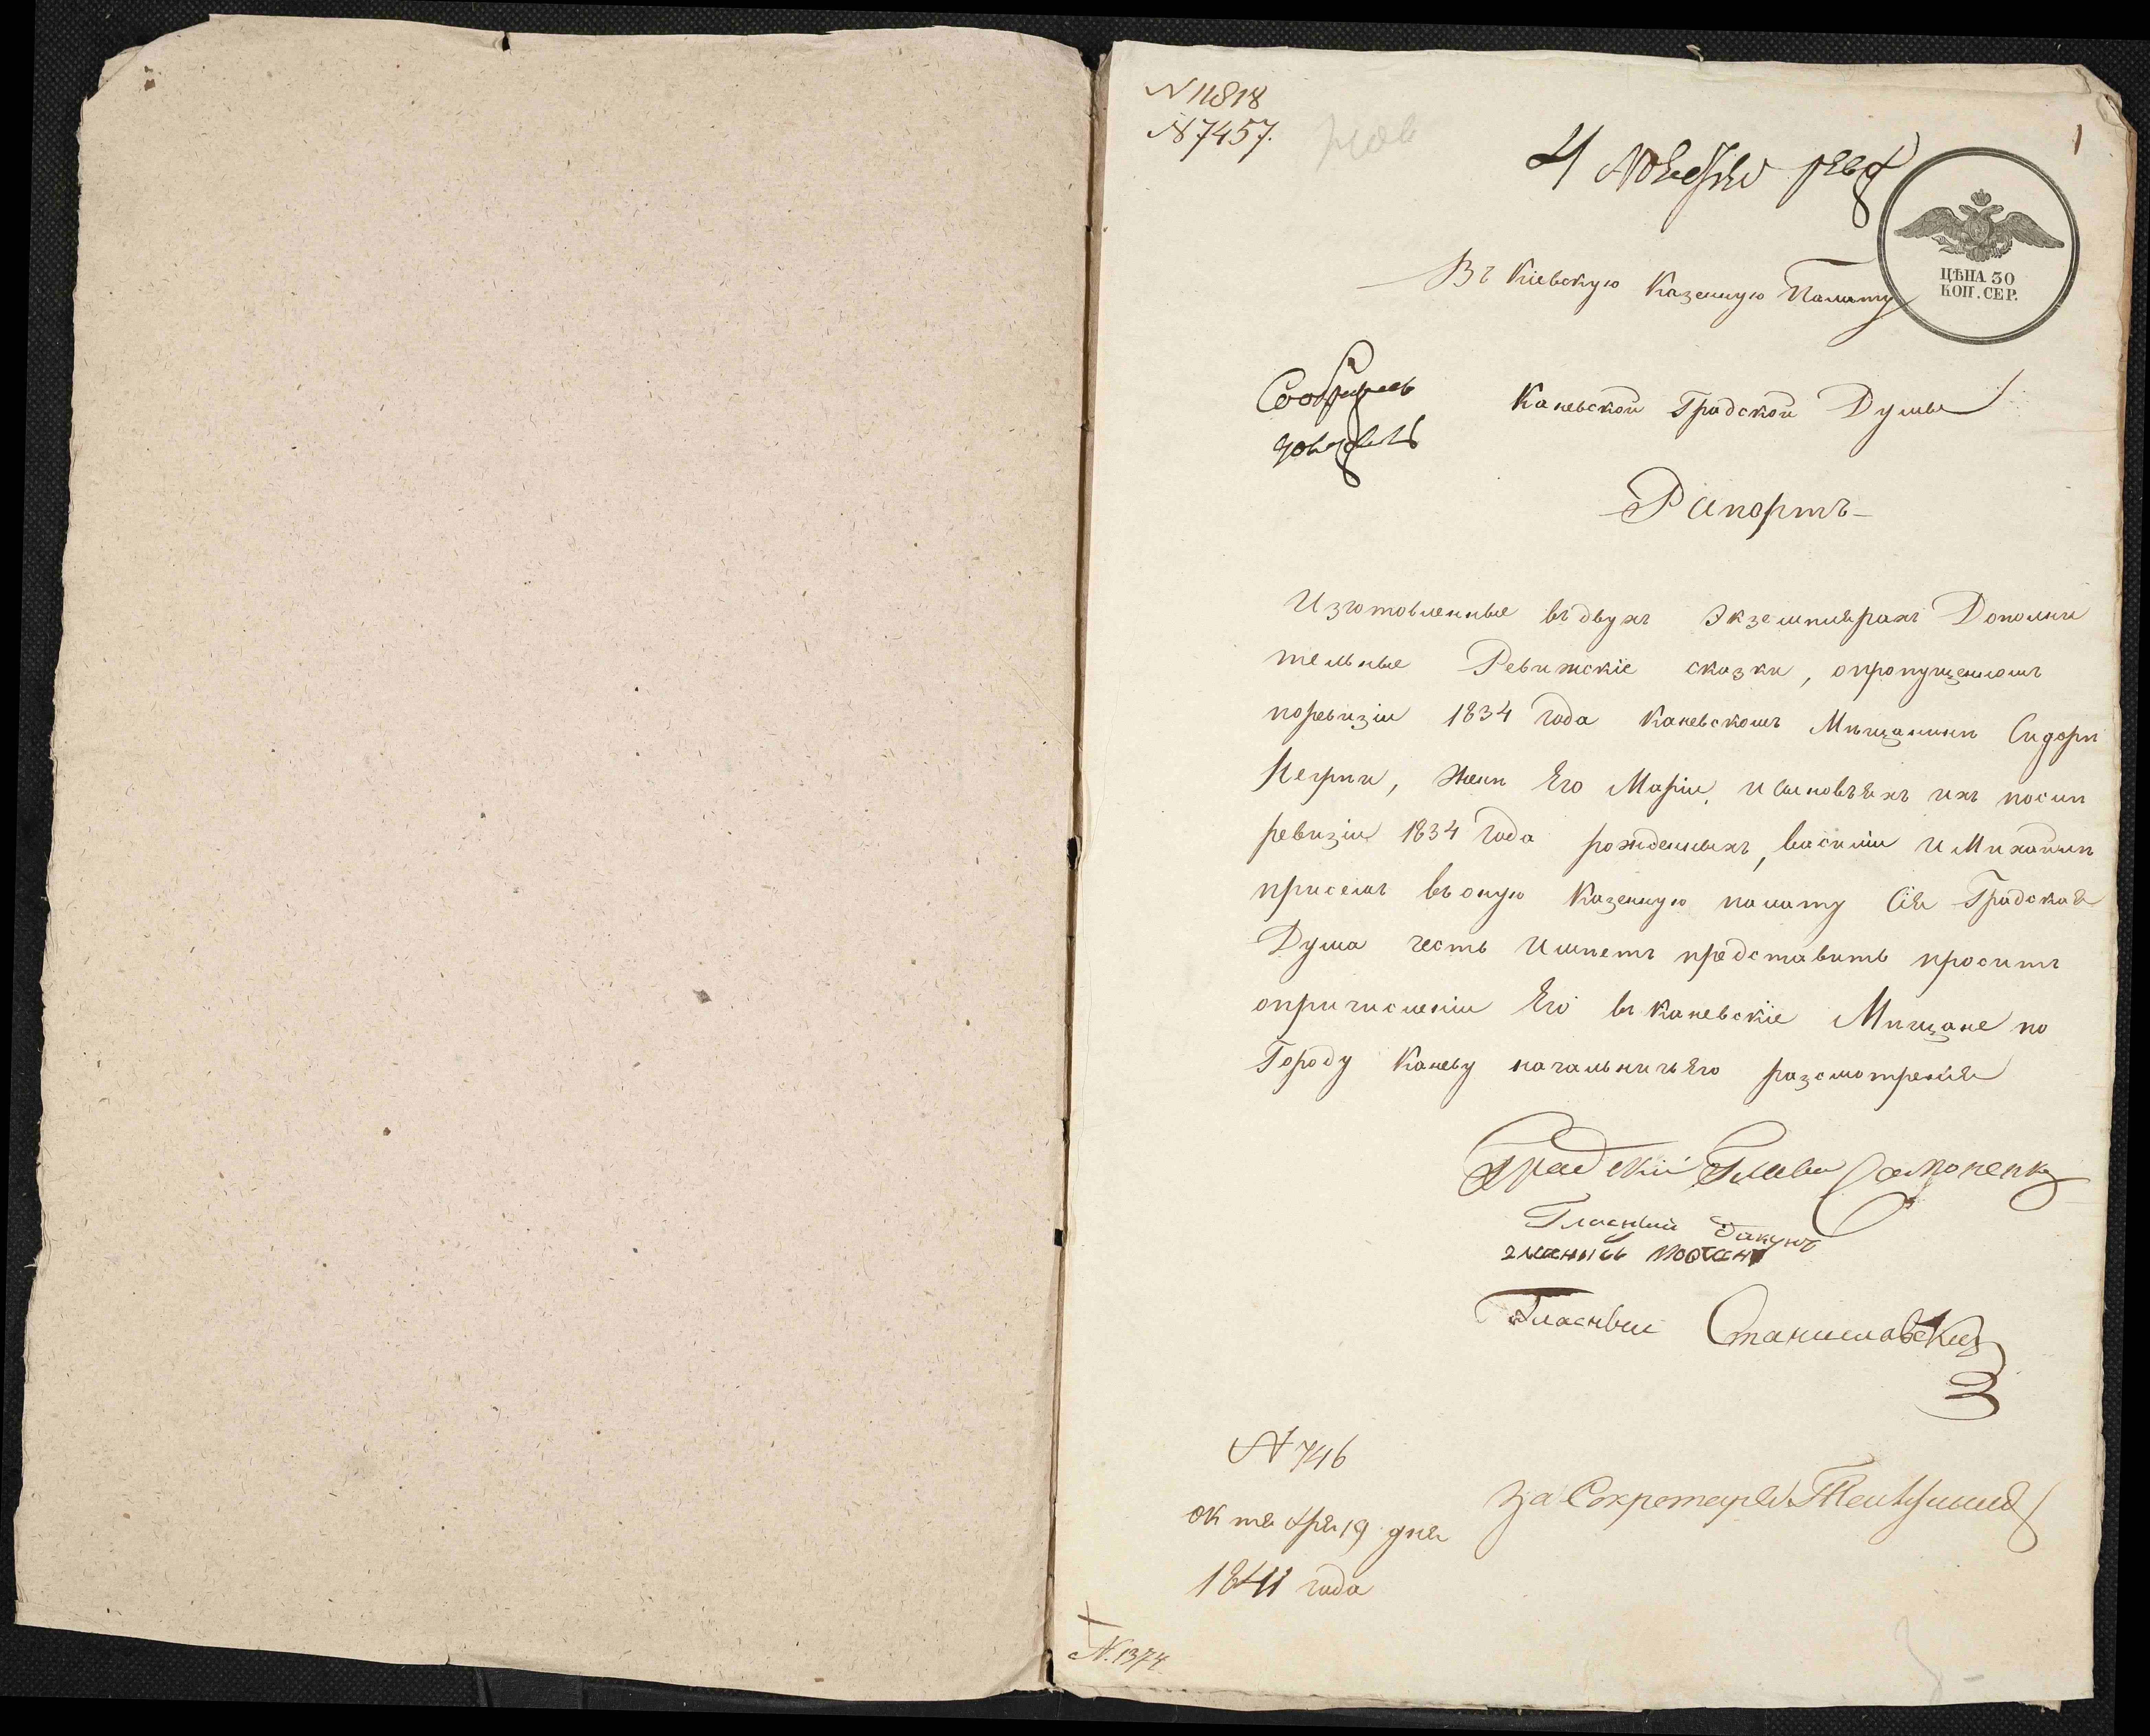 N 11818
N 7457.
1
4 Ноября
ЦѢНА 30
КОП. СЕР.
Въ Кіевскую Казенную Палату
Каневской Градской Думы
Рапортъ
Изготовленные въ двухъ Экземплярахъ Дополни
тельные Ревижскіе сказки, опропущенномъ
поревизіи 1834 года Каневскомъ Мѣщанинѣ Сидорѣ
женѣ Его Маріи, и сыновьяхъ ихъ послѣ
ревизіи 1834 года рожденныхъ, василіи и Михайлѣ
присемъ въ оную Казенную палату Сія Градская
Дума честь имѣетъ представить проситъ
опричисленіи Его въ Каневскіе Мѣщане по
Городу Каневу начальничьяго разсмотренія
Градскій Глава
Гласный
Гласный Станиславскій
N 746
за Секретаря
октября 19 дня
1841 года
N. 1374